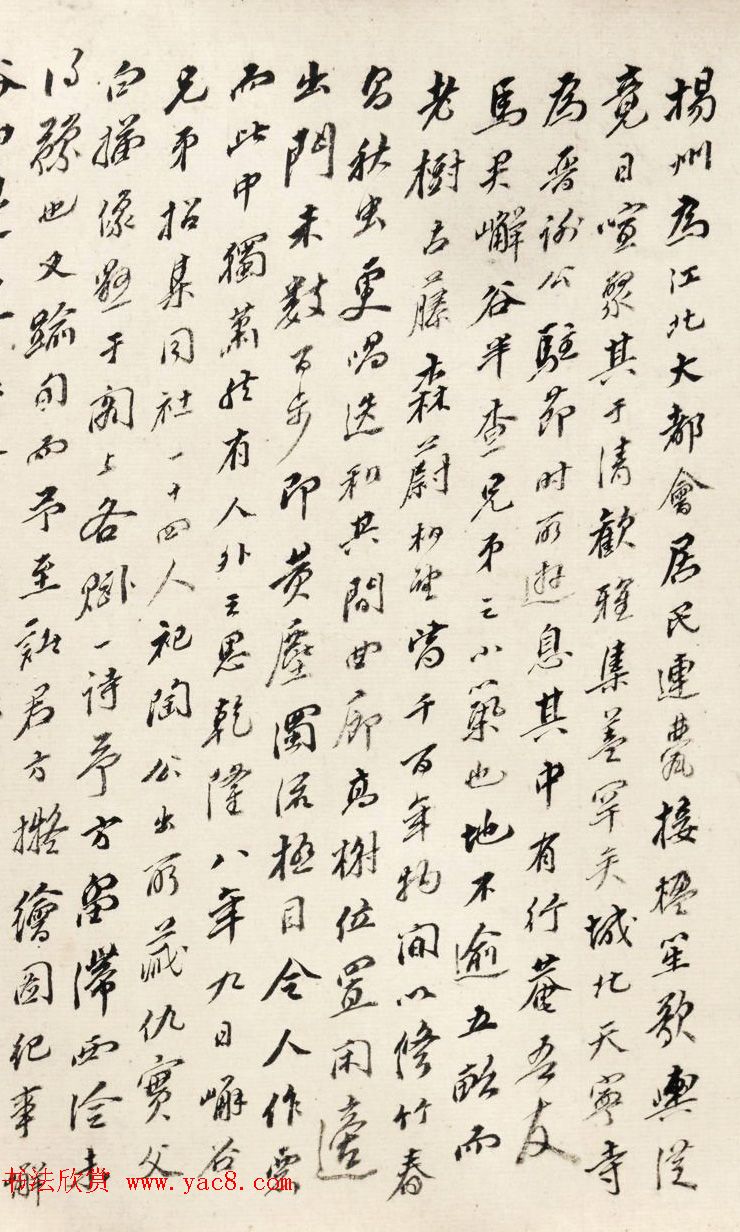 揚州為江北大都會居民連甍接楹笙歌輿從
竟日喧聚其于清歡雅集蓋罕矣城北天寧寺
為晋謝公駐節時所遊息其中有行菴吾友
馬君嶰谷半查兄弟之小築也地不逾五畝而
老樹古藤森蔚相望皆千百年物間以修竹春
鳥秋虫更唱迭和其間曲廊高榭位置閑適
出門未數百步即黄塵濁流極目令人作惡
而此中獨蕭然有人外之思乾隆八年九日嶰谷
兄弟招集同社一十四人祀陶公出所藏仇實父
白描像懸于閣上各賦一詩予方留滯西泠未
得豫也又踰旬而予至諸君方擬繪圖紀事嶰
谷
书法欣赏 www.yac8.com